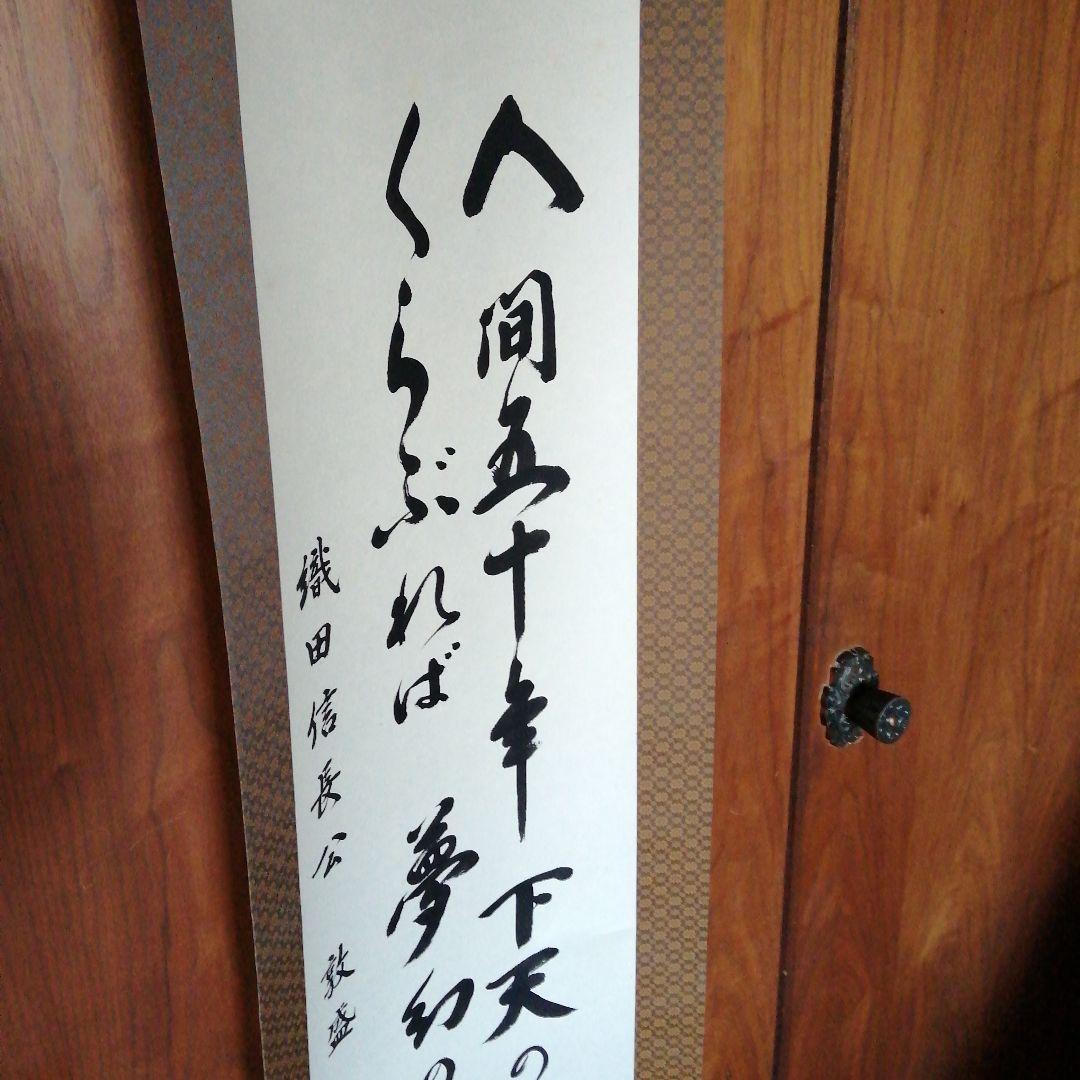 人間五十年下天の
くらぶれば夢幻の
織田信長公 敦盛